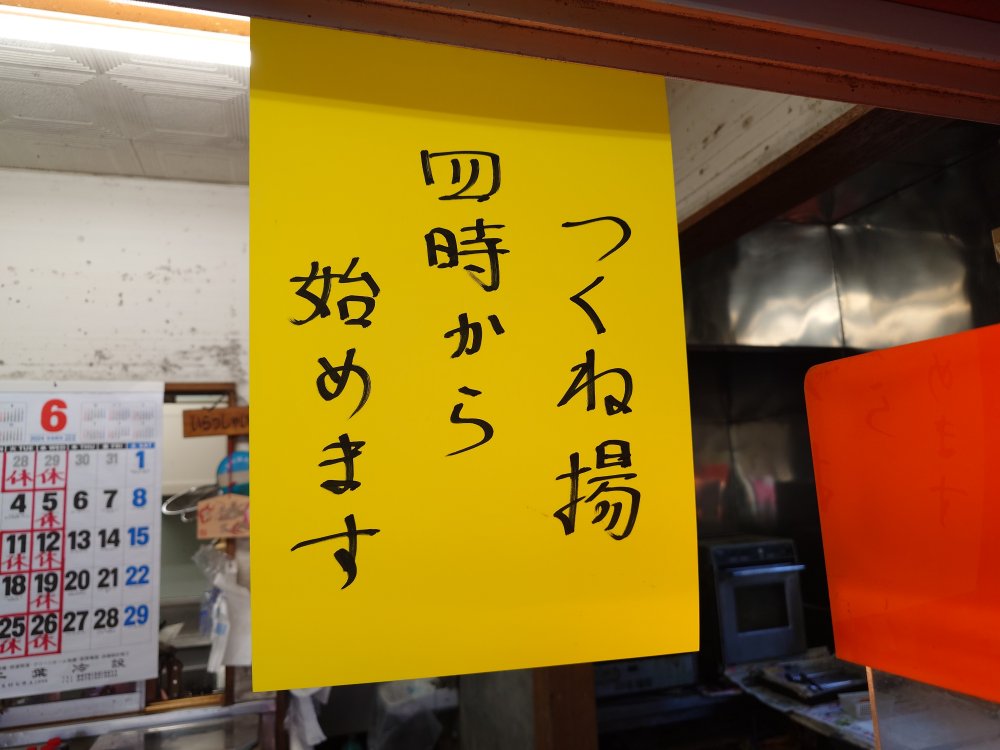 つくね揚
四時から
始めます
いらっしゃい
6
TUE WED THU FRI SAT
28 29 30 31 1
休 休
4 5 6 7 8
休
11 12 13 14 15
休 休
18 19 20 21 22
休
25 26 27 28 29
休 休
葉冷設